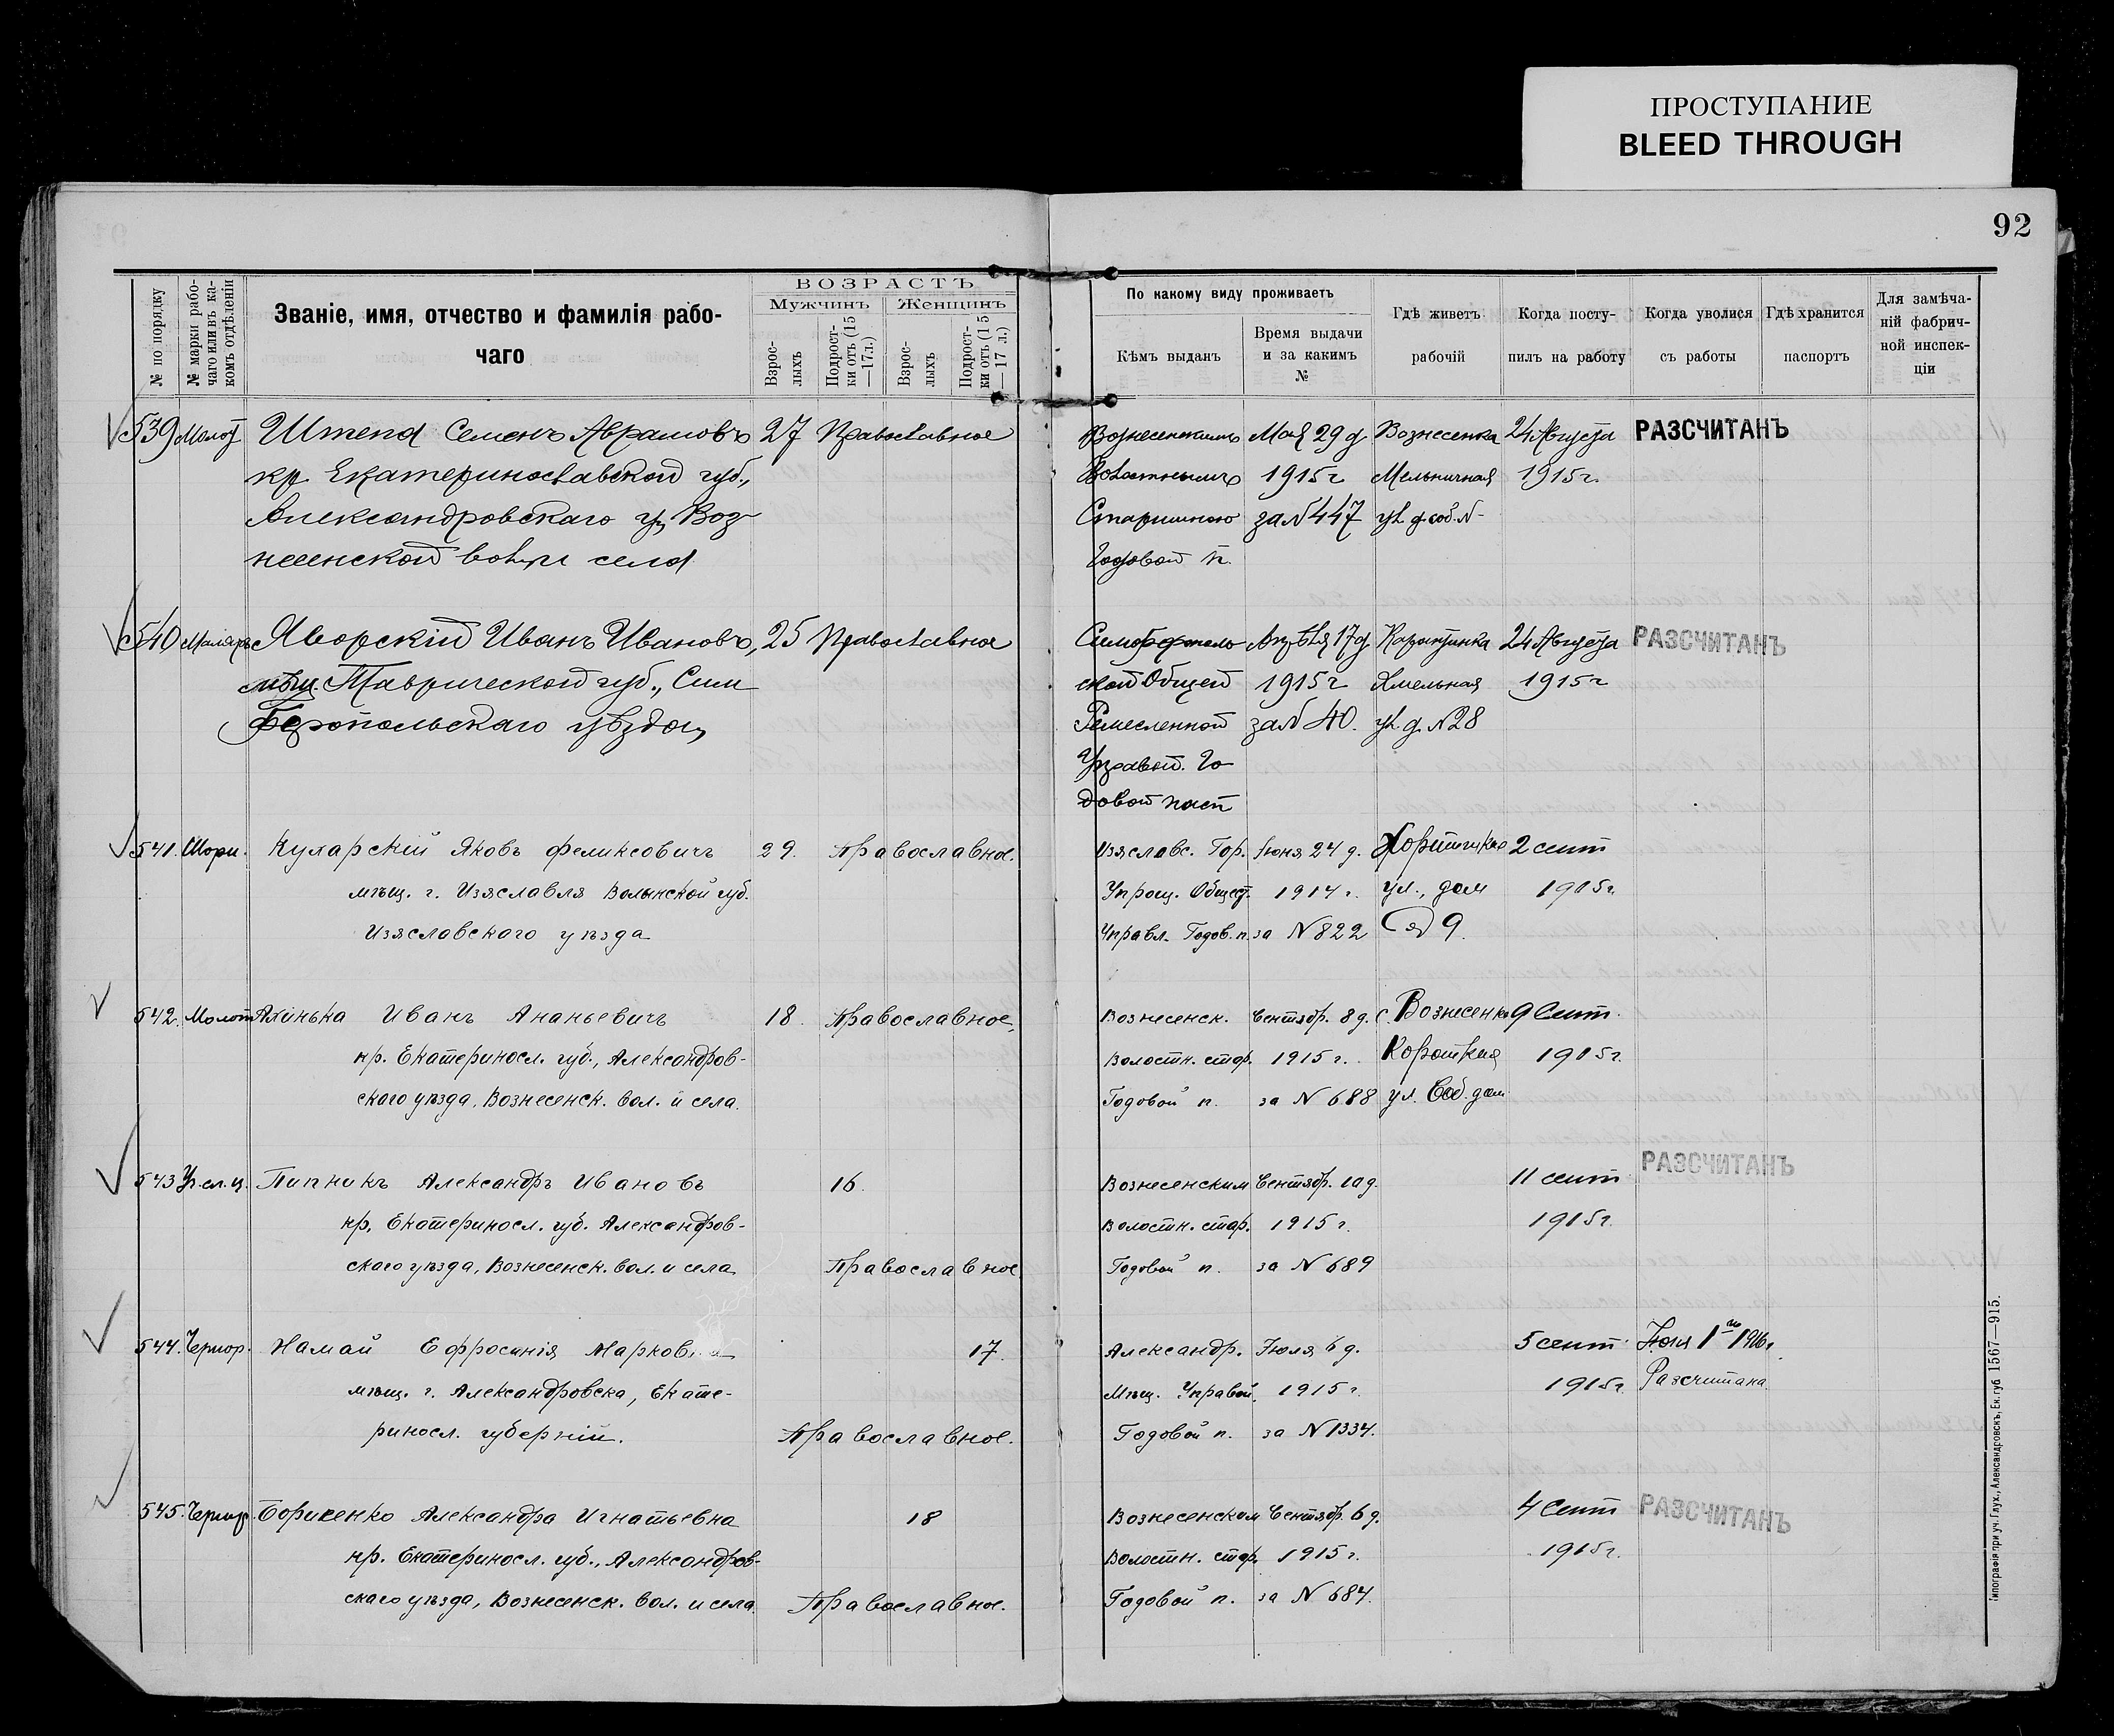 ПРОСТУПАНИЕ
BLEED THROUGH
92
№ по порядку
№ марки рабо-
чаго или въ ка-
комъ отдѣленіи
Званіе, имя, отчество и фамилія рабо-
чаго
ВОЗРАСТЪ
Мужчинъ
Женщинъ
Взрос-
лыхъ
Подрост-
ки отъ (15
—17 л.)
Взрос-
лыхъ
Подрост-
ки отъ (15
—17 л.)
По какому виду проживаетъ
Кѣмъ выданъ
Время выдачи
и за какимъ
№
Гдѣ живетъ
рабочій
Когда посту-
пилъ на работу
Когда уволися
съ работы
Гдѣ хранится
паспортъ
Для замѣча-
ній фабрич-
ной инспек-
ціи
539 Молот Штепа Семенъ Аврамовъ 27 Православное Вознесенскимъ Мая 29 д Вознесенка 24 Августа РАЗСЧИТАНЪ
кр. Екатеринославской губ., Волостнымъ 1915 г Мельничная 1915 г.
Александровскаго у., Воз- Старшиною за № 447 ул. д. соб. № -
несенской вол. и села Годовой п.
540 Маляръ Яворскій Иванъ Ивановъ, 25 Православное Симферополь Апрѣля 17 д Карантинка 24 Августа РАЗСЧИТАНЪ
мѣщ. Таврической губ., Сим ской Общей 1915 г Хмельная 1915 г
феропольскаго уѣзда, Ремесленной за № 40. ул. д. № 28
Управой. Го
довой пасп
541. Шорн. Куларскій Яковъ Феликсовичъ 29. Православное. Изяславс. Гор. Іюня 24 д. Хортицкая 2 сент
мѣщ. г. Изяславля Волынской губ. Упрощ. Общест. 1914 г. ул., дом 1915 г.
Изяславского уѣзда Управл. Годов. п. за № 822 № 9.
542. Молот Ахинька Иванъ Ананьевичъ 18. Православное. Вознесенск. Сентябр. 8 д. с. Вознесенка 9 Сент.
кр. Екатеринosл. губ., Александров- Волостн. стар. 1915 г. Короткая 1915 г.
ского уѣзда, Вознесенск. вол. и села. Годовой п. за № 688 ул. Соб. дом
543 Уч. сл. ц. Пипникъ Александръ Ивановъ 16. Вознесенским Сентябр. 10 д. 11 сент РАЗСЧИТАНЪ
кр. Екатериносл. губ. Александров- Волостн. стар. 1915 г. 1915 г.
ского уѣзда, Вознесенск. вол. и села Православное Годовой п. за № 689
544. Чернор. Намай Ефросинія Марковна 17. Александр. Іюля 6 д. 5 сент. Іюня 1го 1916 г.
мѣщ. г. Александровска, Екате- Мѣщ. Управой. 1915 г. 1915 г. Разсчитана.
риносл. губерніи. Православное. Годовой п. за № 1334.
545. Чернор. Борисенко Александра Игнатьевна 18 Вознесенском Сентябр. 6 д. 4 Сент РАЗСЧИТАНЪ
кр. Екатериносл. губ., Александров- Волостн. стар. 1915 г. 1915 г.
ского уѣзда, Вознесенск. вол. и села. Православное. Годовой п. за № 684.
Типографія при уч. Глух., Александровскъ, Ек. губ. 1567—915.